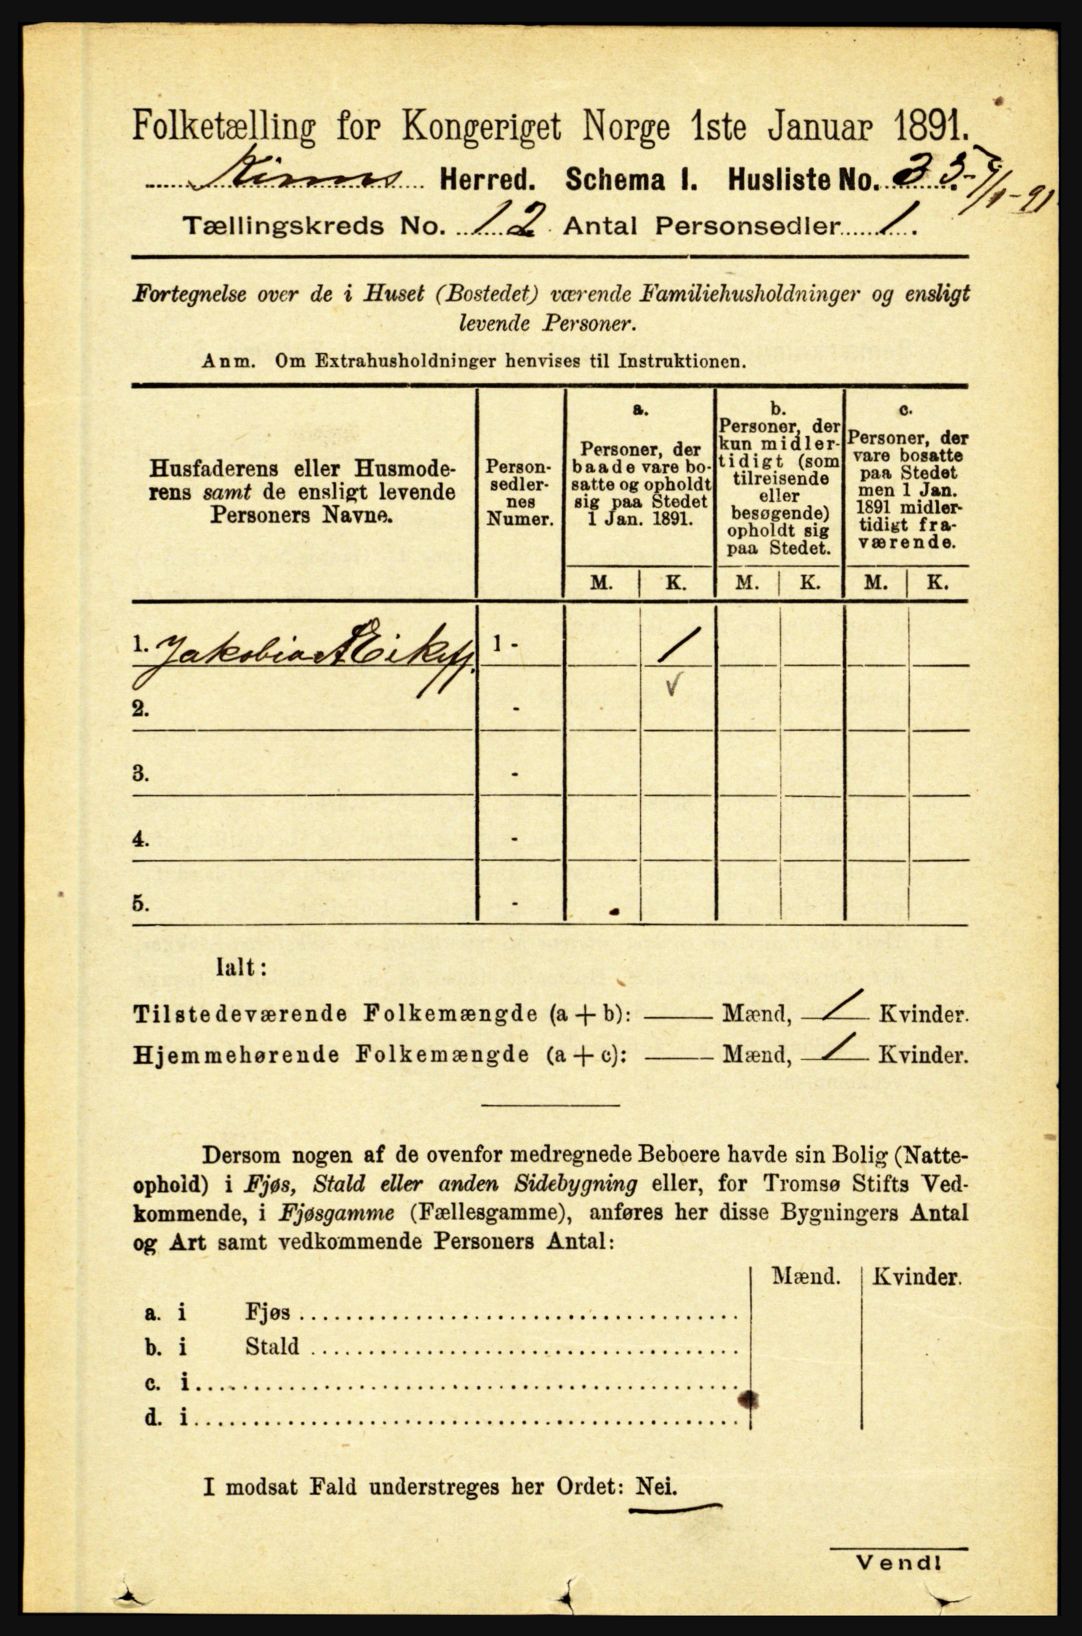 Folketælling for Kongeriget Norge 1ste Januar 1891.
Kinns Herred. Schema I. Husliste No. 35
Tællingskreds No. 12 Antal Personsedler 1.
Fortegnelse over de i Huset (Bostedet) værende Familiehusholdninger og ensligt
levende Personer.
Anm. Om Extrahusholdninger henvises til Instruktionen.
Husfaderens eller Husmode-
rens samt de ensligt levende
Personers Navne.
Person-
sedler-
nes
Numer.
a.
Personer, der
baade vare bo-
satte og opholdt
sig paa Stedet
1 Jan. 1891.
b.
Personer, der
kun midler-
tidigt (som
tilreisende
eller
besøgende)
opholdt sig
paa Stedet.
c.
Personer, der
vare bosatte
paa Stedet
men 1 Jan.
1891 midler-
tidigt fra-
værende.
M. K. M. K. M. K.
1. Jakobia 1 - 1
2. -
3. -
4. -
5. -
Ialt:
Tilstedeværende Folkemængde (a + b): — Mænd, 1 Kvinder.
Hjemmehørende Folkemængde (a + c): — Mænd, 1 Kvinder.
Dersom nogen af de ovenfor medregnede Beboere havde sin Bolig (Natte-
ophold) i Fjøs, Stald eller anden Sidebygning eller, for Tromsø Stifts Ved-
kommende, i Fjøsgamme (Fællesgamme), anføres her disse Bygningers Antal
og Art samt vedkommende Personers Antal:
Mænd. Kvinder.
a. i Fjøs
b. i Stald
c. i
d. i
I modsat Fald understreges her Ordet: Nei.
Vend!